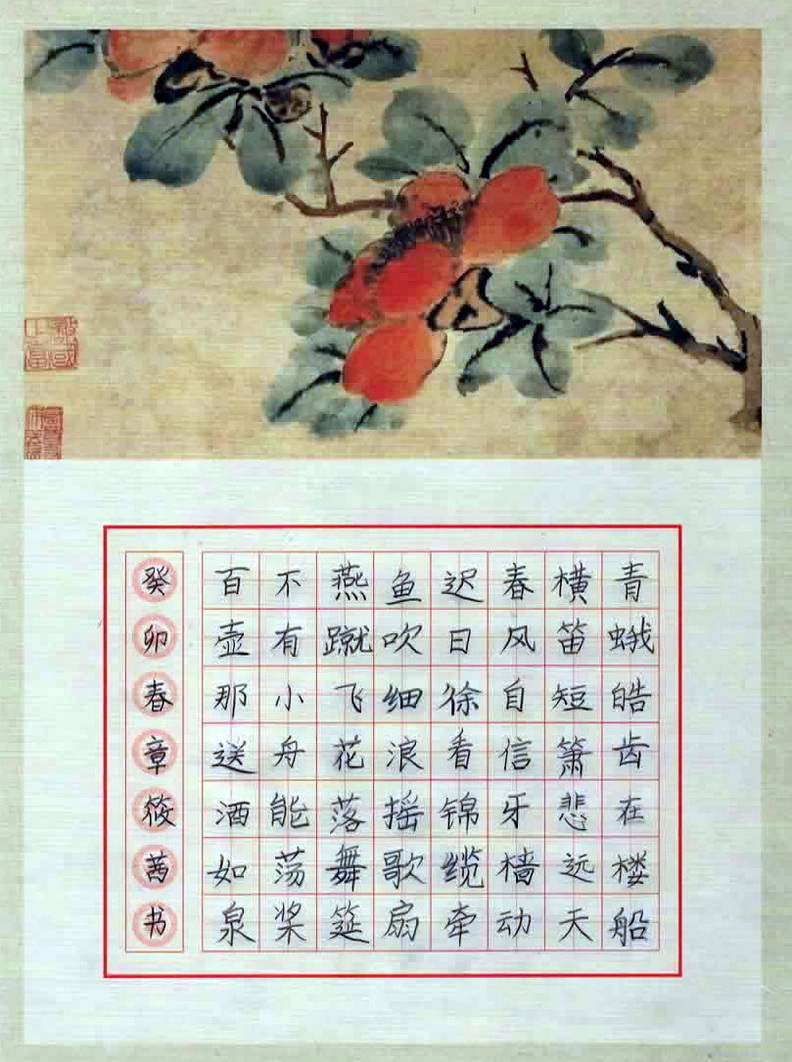 青蛾皓齿在楼船
横笛短箫悲远天
春风自信牙樯动
迟日徐看锦缆牵
鱼吹细浪摇歌扇
燕蹴飞花落舞筵
不有小舟能荡桨
百壶那送酒如泉
癸卯春章筱茜书